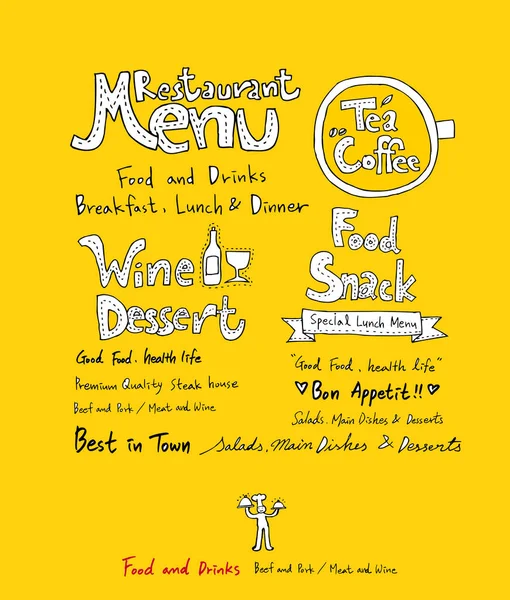 Restaurant
Menu
Tea
Coffee
Food and Drinks
Breakfast, Lunch & Dinner
Food
Snack
Wine
Dessert
Special Lunch Menu
Good Food, health life
Premium Quality Steak house
Beef and Pork / Meat and Wine
"Good Food, health life"
Bon Appetit!!
Salads, Main Dishes & Desserts
Best in Town Salads, Main Dishes & Desserts
Food and Drinks Beef and Pork / Meat and Wine